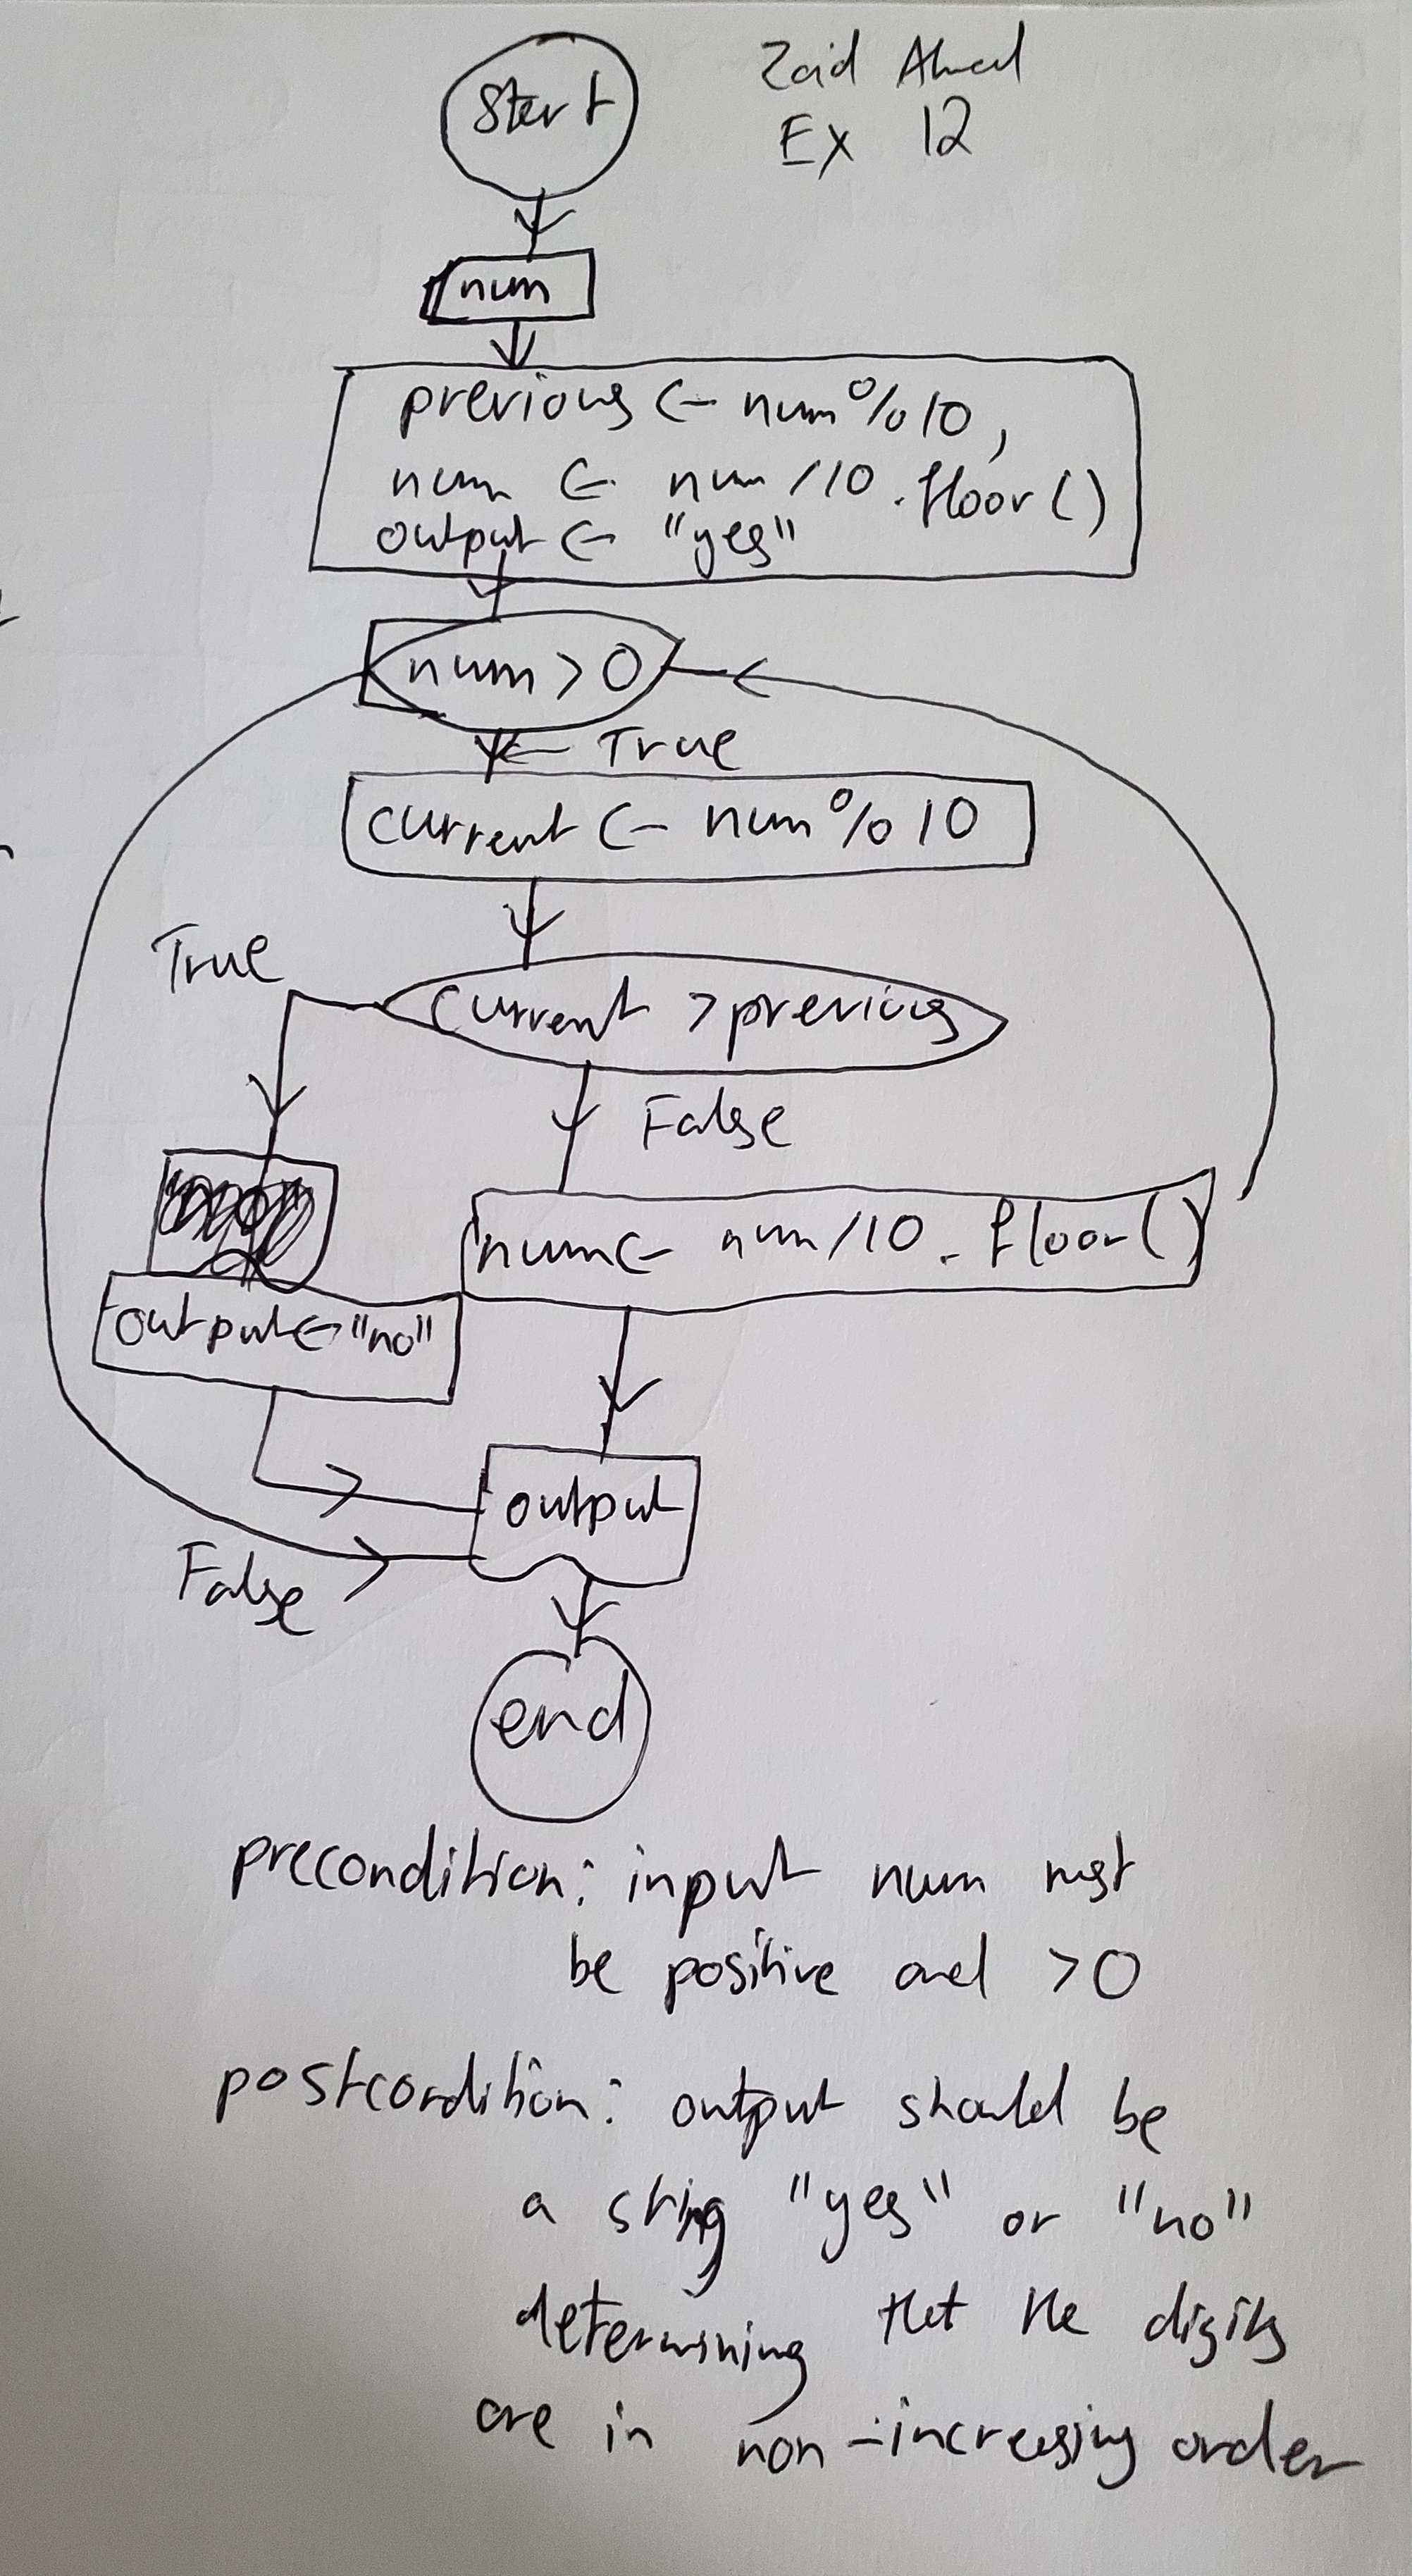 Start
Zaid Ahmed
Ex 12
num
previous <- num % 10,
num <- num / 10 . floor ( )
output <- "yes"
num > 0
True
current <- num % 10
True
current > previous
False
num <- num / 10 . floor ( )
output <- "no"
output
False
end
precondition: input num must
be positive and > 0
postcondition: output should be
a string "yes" or "no"
determining that the digits
are in non-increasing order